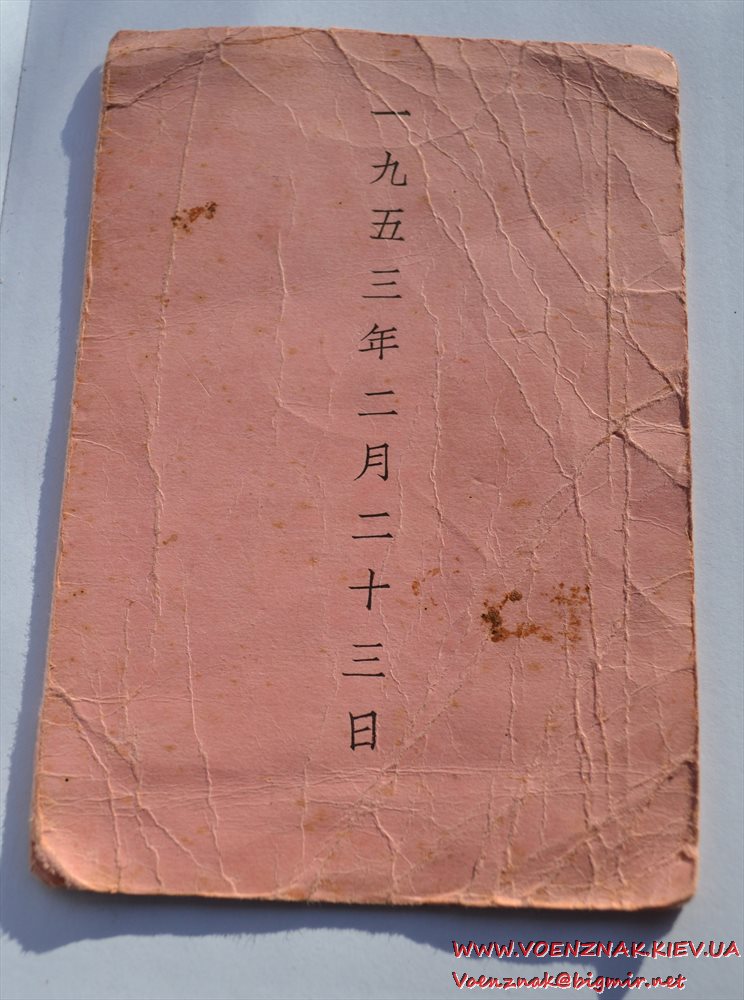 一九五三年二月二十三日
WWW.VOENZNAK.KIEV.UA
Voenznak@bigmir.net